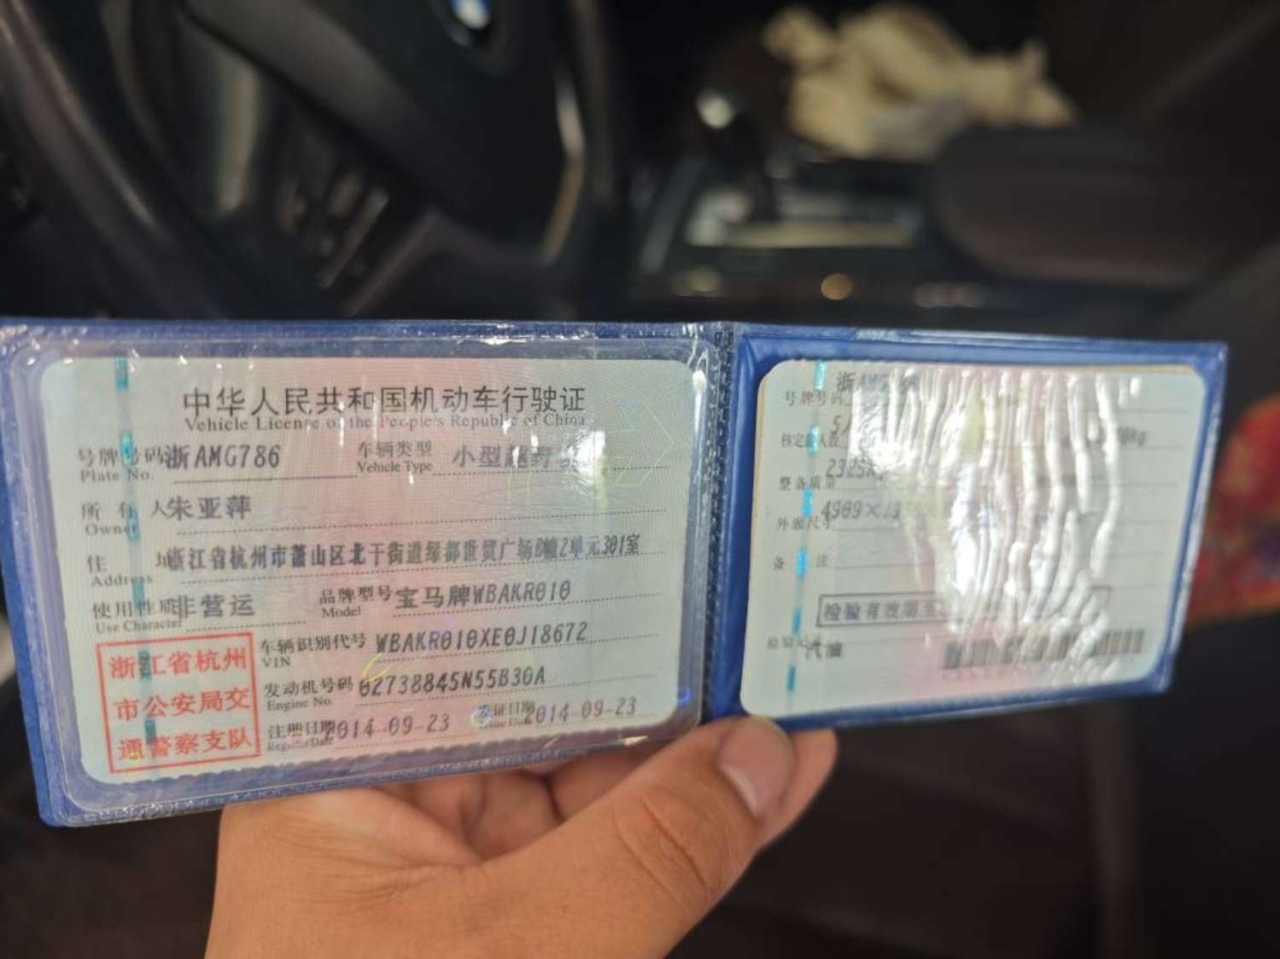 中华人民共和国机动车行驶证
Vehicle License of the People's Republic of China
号牌号码 浙AMG786 车辆类型 小型越野客
Plate No. Vehicle Type
所有人 朱亚萍
Owner
住址 浙江省杭州市萧山区北干街道绿都世贸广场B幢2单元301室
Address
使用性质 非营运 品牌型号 宝马牌WBAKR010
Use Character Model
车辆识别代号 WBAKR010XE0J18672
VIN
发动机号码 02738845N55B30A
Engine No.
注册日期 2014-09-23 发证日期 2014-09-23
Register Date Issue Date
浙江省杭州
市公安局交
通警察支队
号牌号码 浙AMG
核定载人数
整备质量
外廓尺寸
备注
检验有效期至
检验记录
汽油